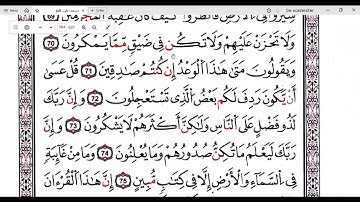 Se connecter
سِيرُوا۟ فِى ٱلْأَرْضِ فَٱنظُرُوا۟ كَيْفَ كَانَ عَٰقِبَةُ ٱلْمُجْرِمِينَ
٧٠ وَلَا تَحْزَنْ عَلَيْهِمْ وَلَا تَكُن فِى ضَيْقٍ مِّمَّا يَمْكُرُونَ
وَيَقُولُونَ مَتَىٰ هَٰذَا ٱلْوَعْدُ إِن كُنتُمْ صَٰدِقِينَ ٧١ قُلْ عَسَىٰٓ
أَن يَكُونَ رَدِفَ لَكُم بَعْضُ ٱلَّذِى تَسْتَعْجِلُونَ ٧٢ وَإِنَّ رَبَّكَ
لَذُو فَضْلٍ عَلَى ٱلنَّاسِ وَلَٰكِنَّ أَكْثَرَهُمْ لَا يَشْكُرُونَ ٧٣ وَإِنَّ
رَبَّكَ لَيَعْلَمُ مَا تُكِنُّ صُدُورُهُمْ وَمَا يُعْلِنُونَ ٧٤ وَمَا مِنْ غَآئِبَةٍ
فِى ٱلسَّمَآءِ وَٱلْأَرْضِ إِلَّا فِى كِتَٰبٍ مُّبِينٍ ٧٥ إِنَّ هَٰذَا ٱلْقُرْءَانَ